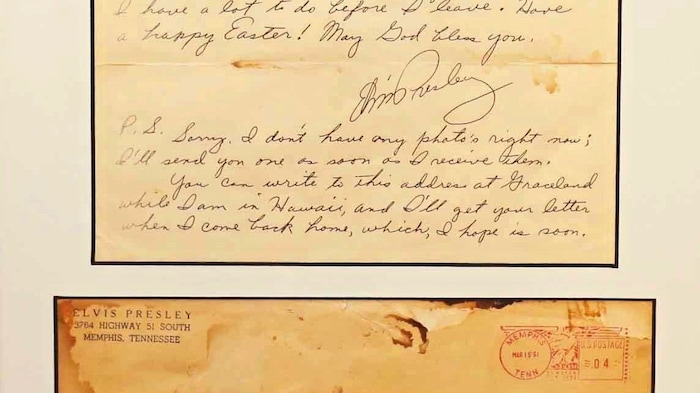 I have a lot to do before I leave. Have
a happy Easter! May God bless you.
Presley
P.S. Sorry, I don't have any photo's right now;
I'll send you one as soon as I receive them.
You can write to this address at Graceland
while I am in Hawaii, and I'll get your letter
when I come back home, which, I hope is soon.
ELVIS PRESLEY
3764 HIGHWAY 51 SOUTH
MEMPHIS, TENNESSEE
MEMPHIS
TENN
U.S. POSTAGE
.04